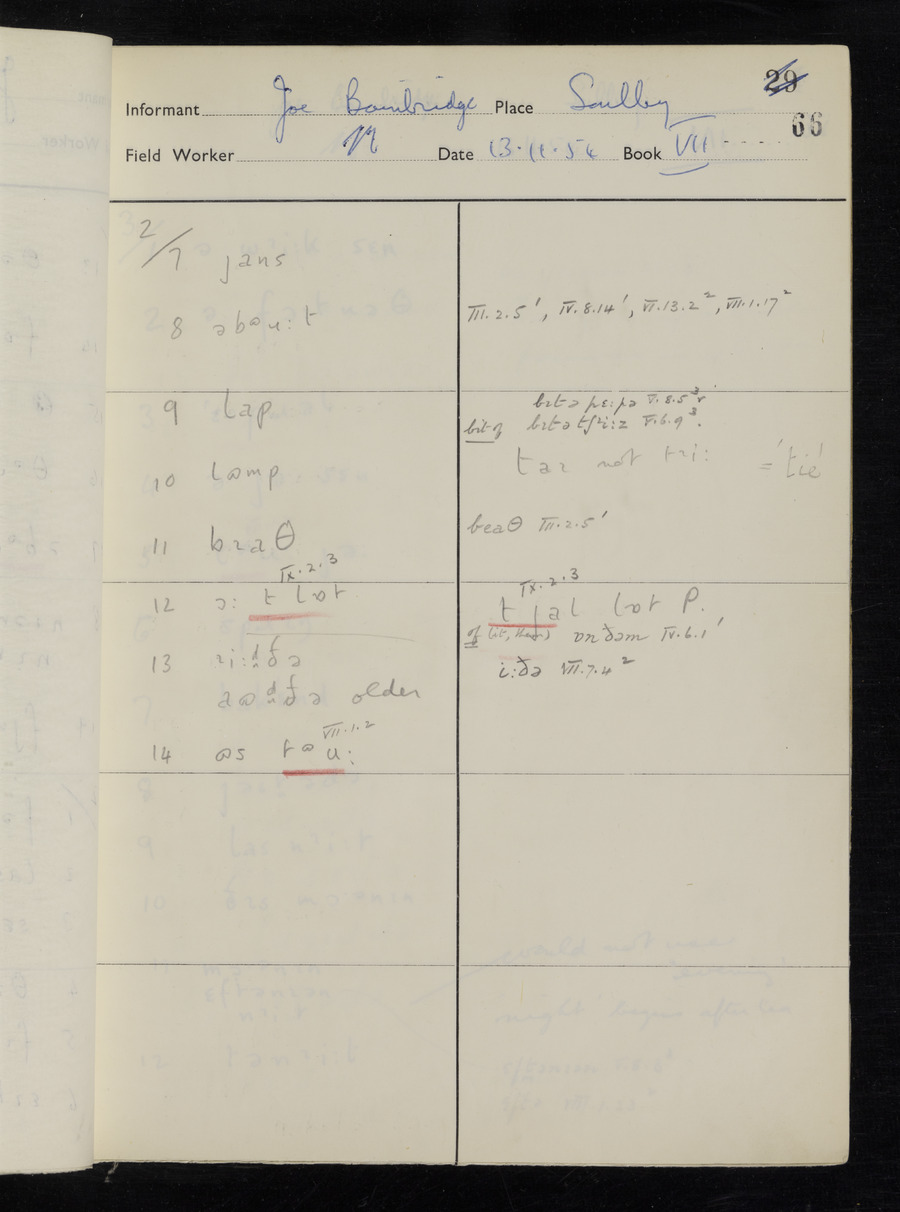 29
Informant Joe Bainbridge Place Soulby
66
Field Worker N Date 13.11.54 Book VII
2/7 jans
8 əbaʊ:t
III.2.5', IV.8.14', VI.13.2², VII.1.17²
9 lap
bɪtə pɛ:pə V.8.5³
bit of bɪtətʃɹi:z V.6.9³.
10 lamp
taɪ not tɹi: = 'tie'
11 bɹaθ
beaθ III.2.5'
IX.2.3
12 ɔ: t lɒt
IX.2.3
t jal lɒt P.
of (it, them) ɒn ðəm IV.6.1'
13 ɹi:dðə
i:ðə VII.7.4²
aʊdðə older
VII.1.2
14 əs təu: